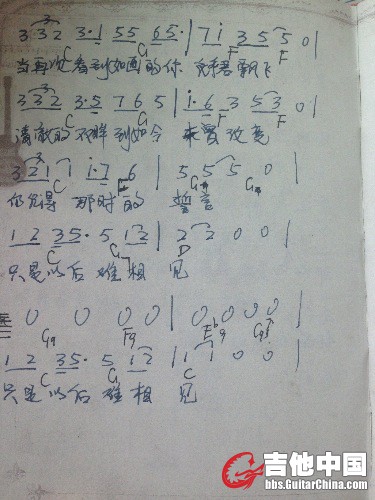 3 3 2 3·1 5 5 6 5· | 7 i 3 5 5 0 |
C G F F
当再次看到如画的你
3 3 2 3·5 7 6 5 | i·6 3 5 3 0 |
C G F F
清澈的 到如今 未曾改变
3 2 1 1 i·7 6 | 5 5 5 0 |
仍记得 那时的 誓言
1 2 3 5· 5 1 2 | 2 2 0 0 |
C G D
只是以后 难相 见
0 0 0 0 | 0 0 0 0 |
1 2 3 5· 5 1 2 | 1 1 0 0 |
C G C
只是以后 难相 见
吉他中国
bbs.GuitarChina.com